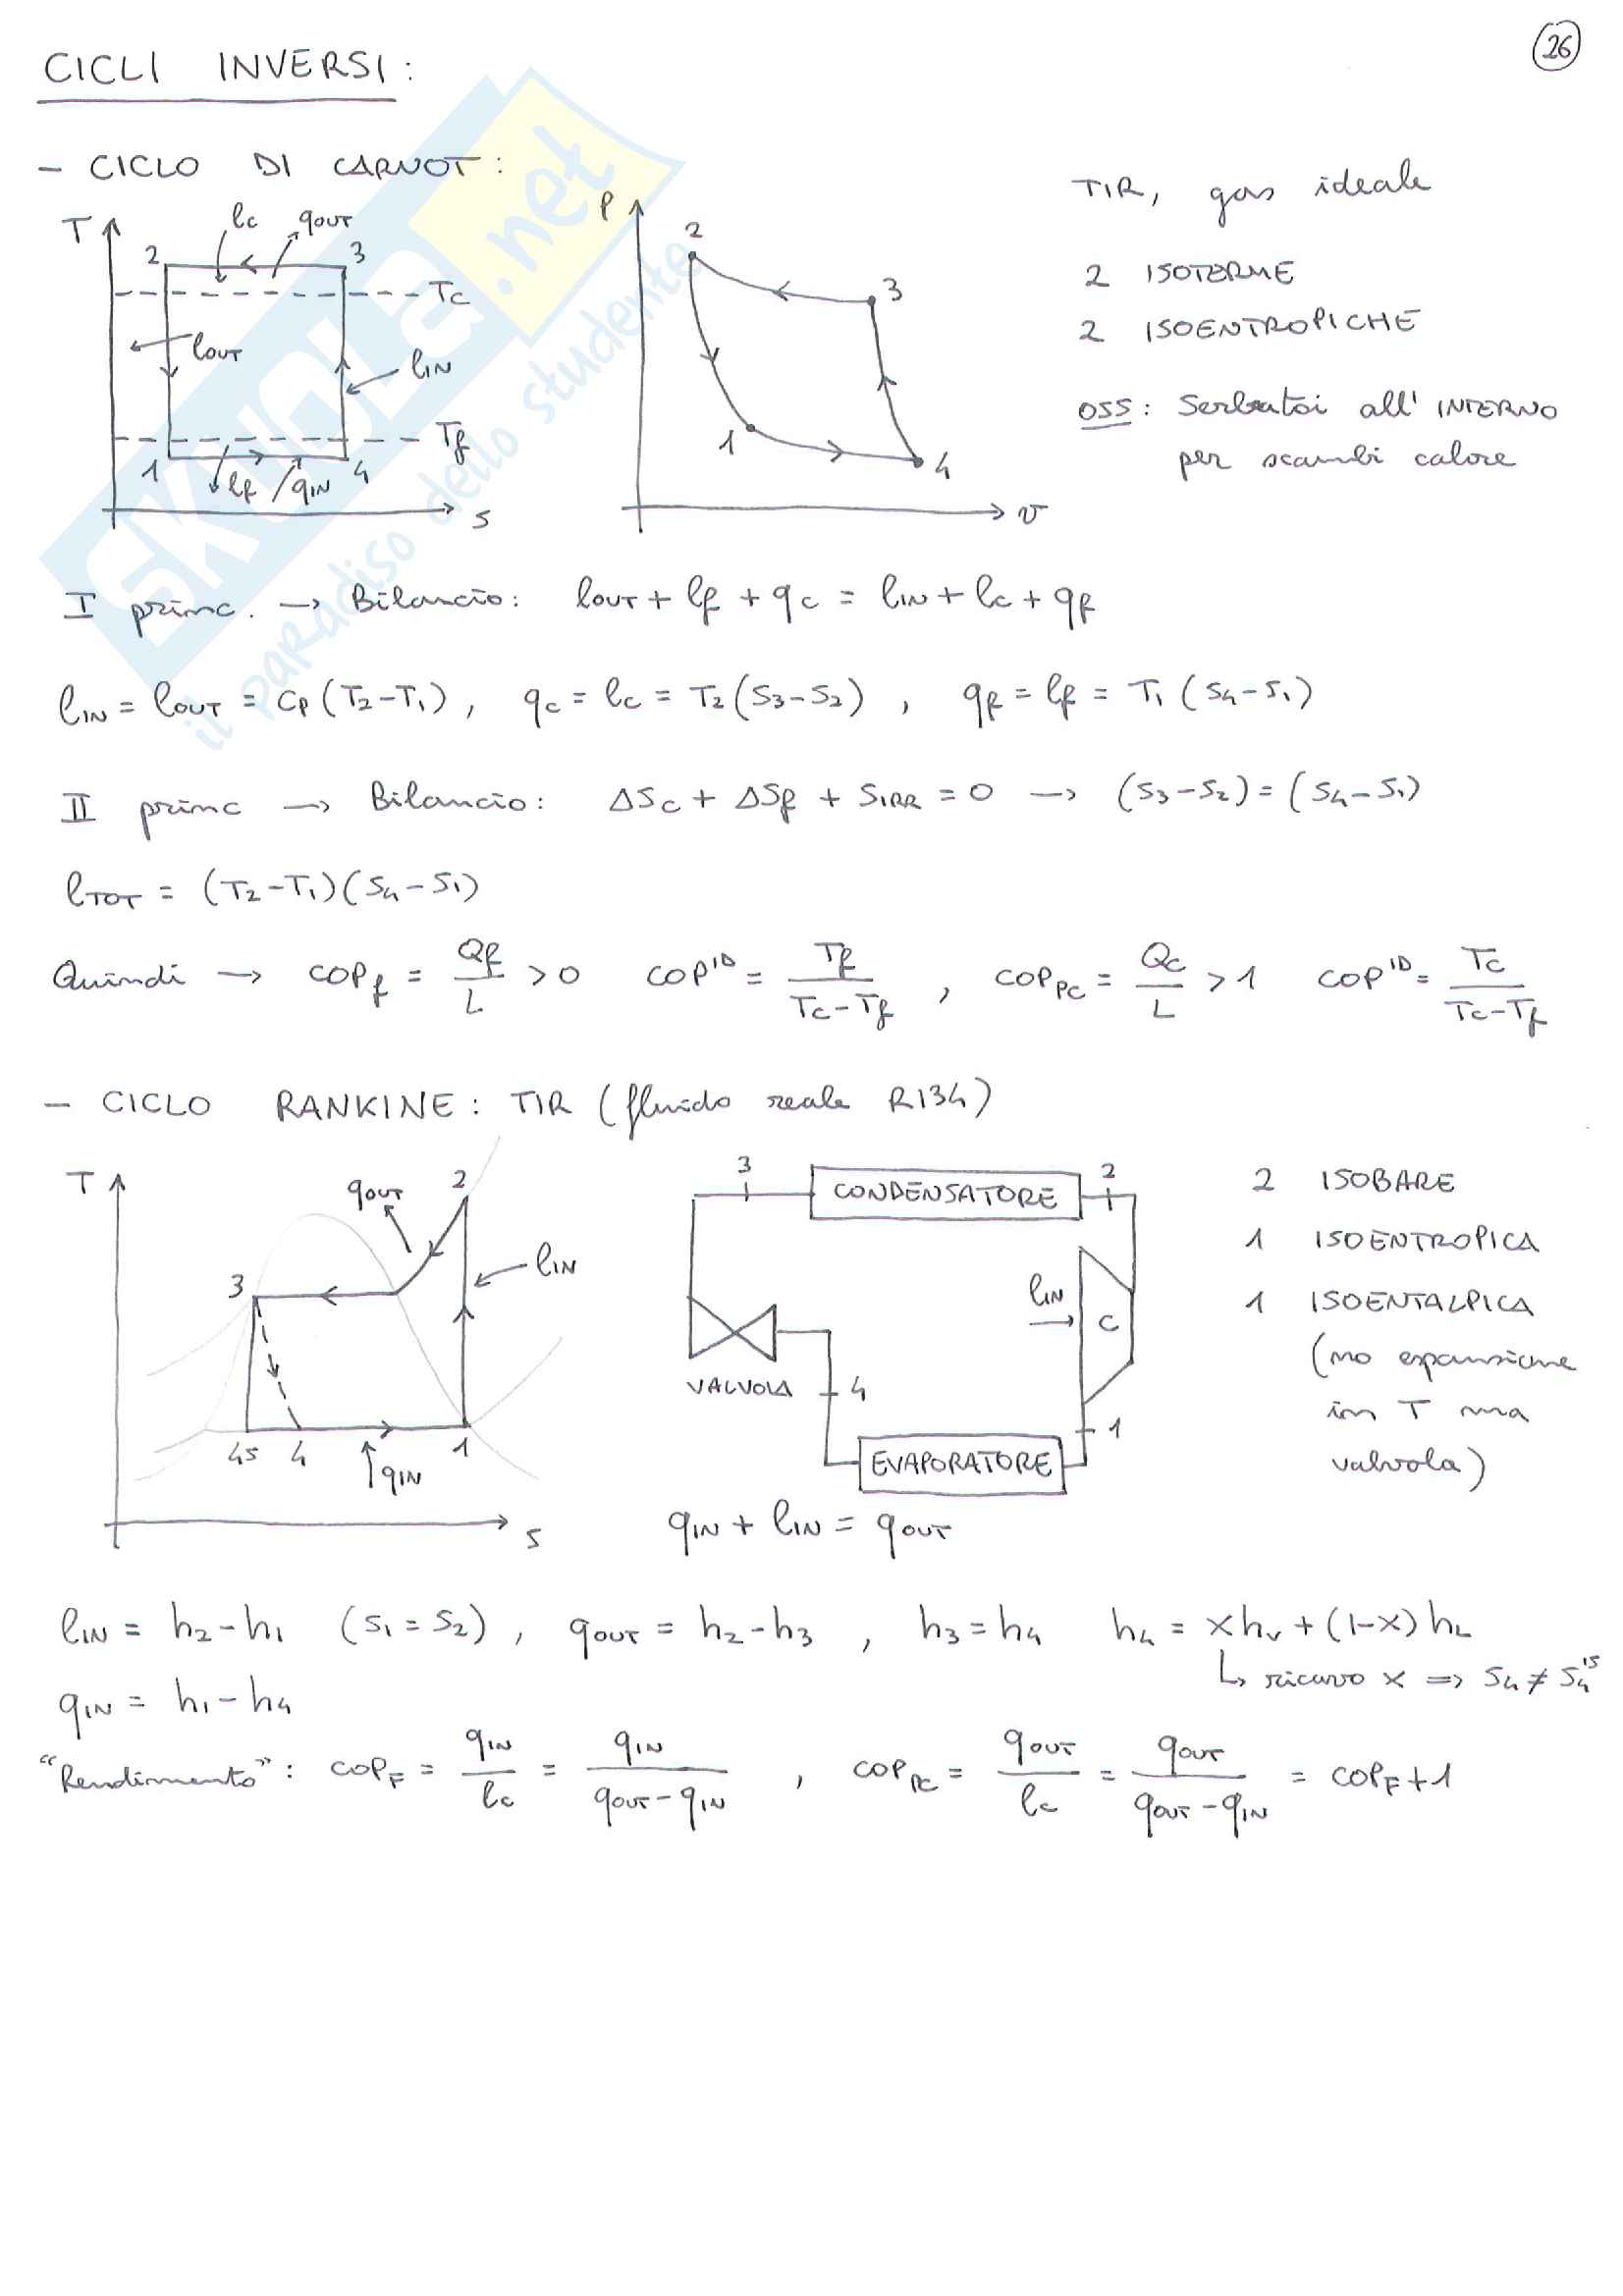 26
CICLI INVERSI:
- CICLO DI CARNOT:
T
lc
qOUT
2
3
Tc
lOUT
lIN
Tf
1
lf
qIN
4
s
P
2
3
1
4
v
TIR, gas ideale
2 ISOTERME
2 ISOENTROPICHE
OSS: Serbatoi all' INTERNO
per scambi calore
I princ. → Bilancio: lOUT + lf + qc = lIN + lc + qf
lIN = lOUT = cp (T2-T1), qc = lc = T2 (S3-S2), qf = lf = T1 (S4-S1)
II princ → Bilancio: ΔSc + ΔSf + SIRR = 0 → (S3-S2) = (S4-S1)
lTOT = (T2-T1)(S4-S1)
Quindi → COPf = Qf/L > 0 COP^ID = Tf/(Tc-Tf), COPPC = Qc/L > 1 COP^ID = Tc/(Tc-Tf)
- CICLO RANKINE: TIR (fluido reale R134)
T
qOUT
2
lIN
3
4s
4
1
qIN
s
3
CONDENSATORE
2
lIN
C
VALVOLA
4
1
EVAPORATORE
qIN + lIN = qOUT
2 ISOBARE
1 ISOENTROPICA
1 ISOENTALPICA
(no espansione
in T ma
valvola)
lIN = h2-h1 (S1=S2), qOUT = h2-h3, h3=h4 h4 = xhv + (1-x) hL
↳ ricavo x ⇒ S4 ≠ S4^IS
qIN = h1-h4
"Rendimento": COPF = qIN/lc = qIN/(qOUT-qIN), COPPC = qOUT/lc = qOUT/(qOUT-qIN) = COPF+1
SKUOLA.net
il paradiso dello studente